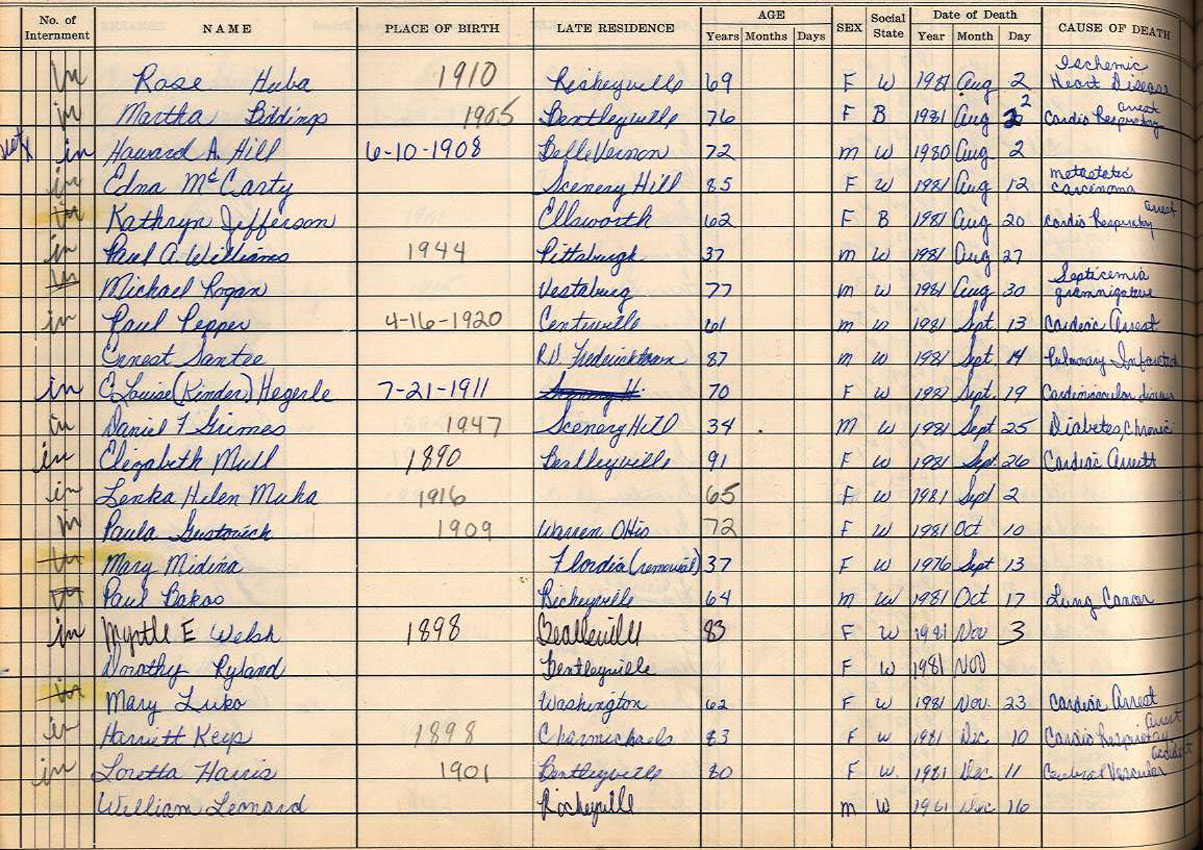 No. of Internment NAME PLACE OF BIRTH LATE RESIDENCE AGE Years Months Days SEX Social State Date of Death Year Month Day CAUSE OF DEATH
in Rose Huba 1910 69 F W 1981 Aug 2 Ischemic Heart Disease
in Martha Biddings 1905 Bentleyville 76 F B 1981 Aug 2 Cardio Respiratory arrest
vet X in Howard A. Hill 6-10-1908 Belle Vernon 72 m W 1980 Aug 2
in Edna McCarty Scenery Hill 85 F W 1981 Aug 12 metastetic carcinoma
in Kathryn Jefferson Ellsworth 62 F B 1981 Aug 20 Cardio Respiratory arrest
in Paul A. Williams 1944 Pittsburgh 37 m W 1981 Aug 27
in Michael Rogan Vestaburg 77 m W 1981 Aug 30 Septicemia
in Paul Pepper 4-16-1920 Centerville 61 m W 1981 Sept 13 Cardiac Arrest
Ernest Santee R.D. Fredericktown 87 m W 1981 Sept 14 Pulmonary
in C. Louise (Kinder) Hegerle 7-21-1911 70 F W 1981 Sept. 19
in Daniel F Grimes 1947 Scenery Hill 34 m W 1981 Sept 25 Diabetes, Chronic
in Elizabeth Mull 1890 Bentleyville 91 F W 1981 Sept. 26 Cardiac Arrest
in Lenka Helen Muha 1916 65 F W 1981 Sept 2
in Paula 1909 Warren Ohio 72 F W 1981 Oct 10
in Mary Midina Flordia (removal) 37 F W 1976 Sept 13
in Paul Bakos Richeyville 64 m W 1981 Oct 17 Lung Cancer
in Myrtle E Welsh 1898 Beallsville 83 F W 1981 Nov 3
Dorothy Ryland Bentleyville F W 1981 Nov
in Mary Luko Washington 62 F W 1981 Nov. 23 Cardiac Arrest
in Harriett Keys 1898 Charmichaels 83 F W 1981 Dec 10 Cardio Respiratory arrest
in Loretta Harris 1901 Bentleyville 80 F W 1981 Dec 11 Cerebral Vascular accident
William Leonard Richeyville m W 1981 Dec 16